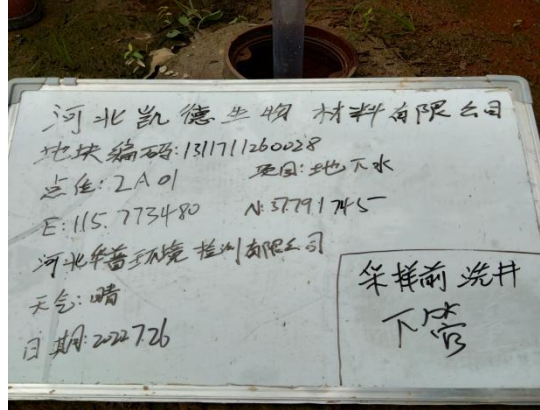 河北凯德生物材料有限公司
地块编码:1311711260028
点位:2A01 项目:地下水
E:115.773480 N:37.791745
河北华普环境检测有限公司
天气:晴
日期:2022.7.26
采样前洗井
下管